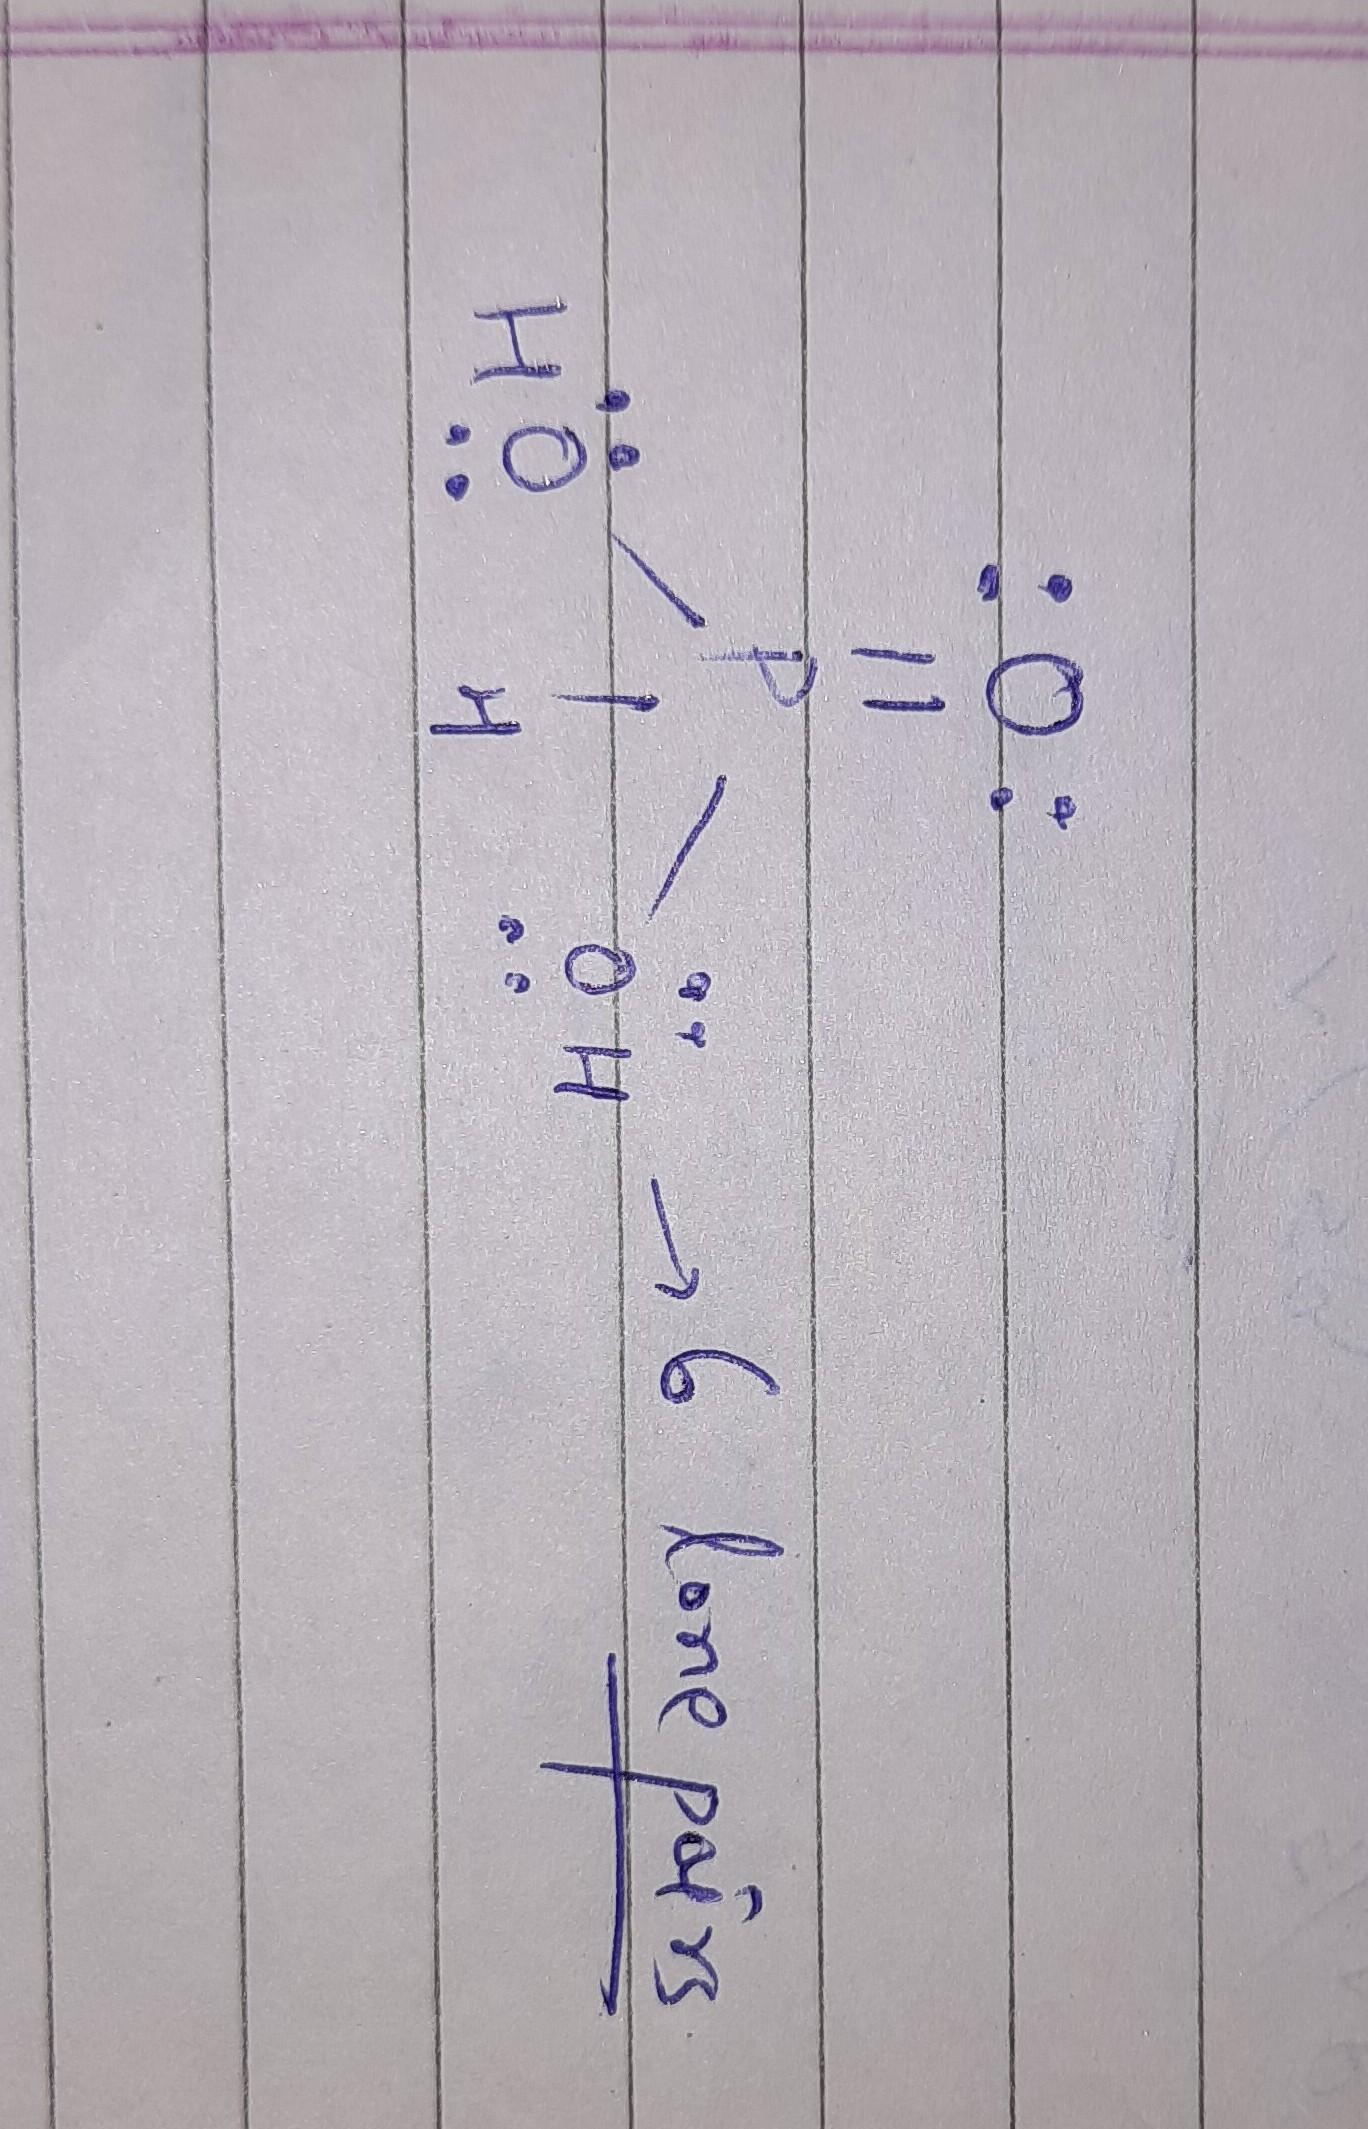 O
HO P OH → 6 lone pairs
H